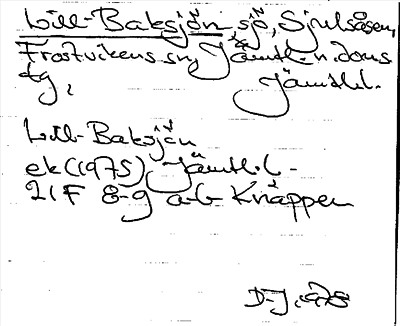 Lill-Baksjön sjö, Sjulsåsen,
Frostvikens sn, Jämtl. n. doms
tg, Jämtl. l.
Lill-Baksjön
ek (1975) Jämtl. l-
21F 8-9 a-b Knäppen
D-J, 1978